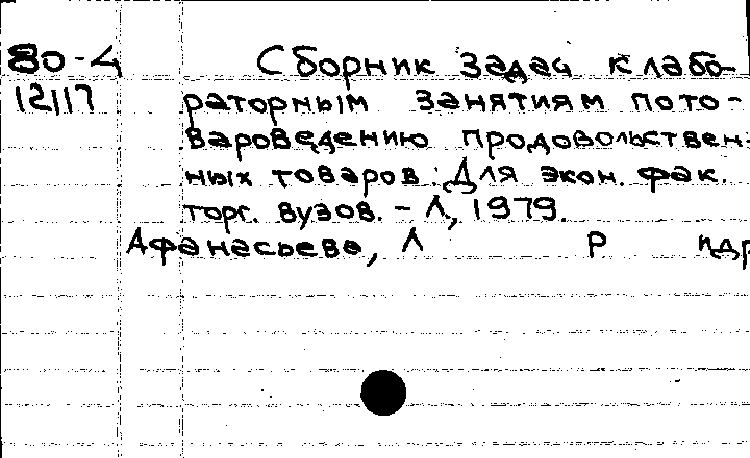 80-4 Сборник задач к лабо-
12117 раторным занятиям по то-
вароведению продовольствен-
ных товаров: Для экон. фак.
торг. вузов. - Л, 1979.
Афанасьева, Л Р идр